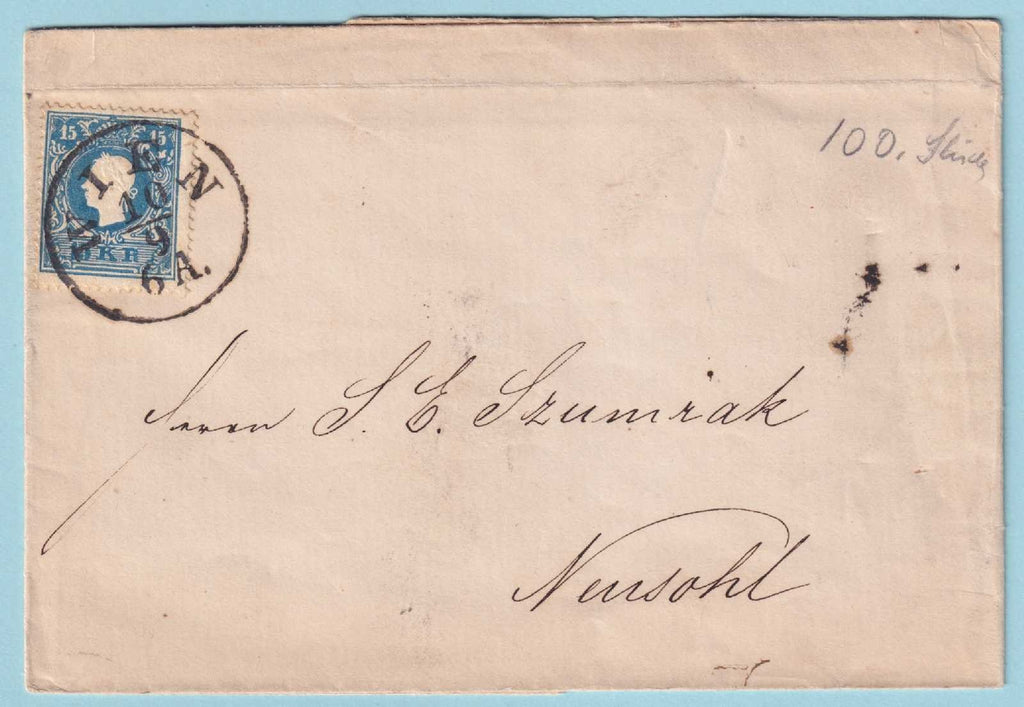 15 15
WIEN
10
9
6 A.
15 KR
100.
Herrn S. E. Szumrak
Neusohl